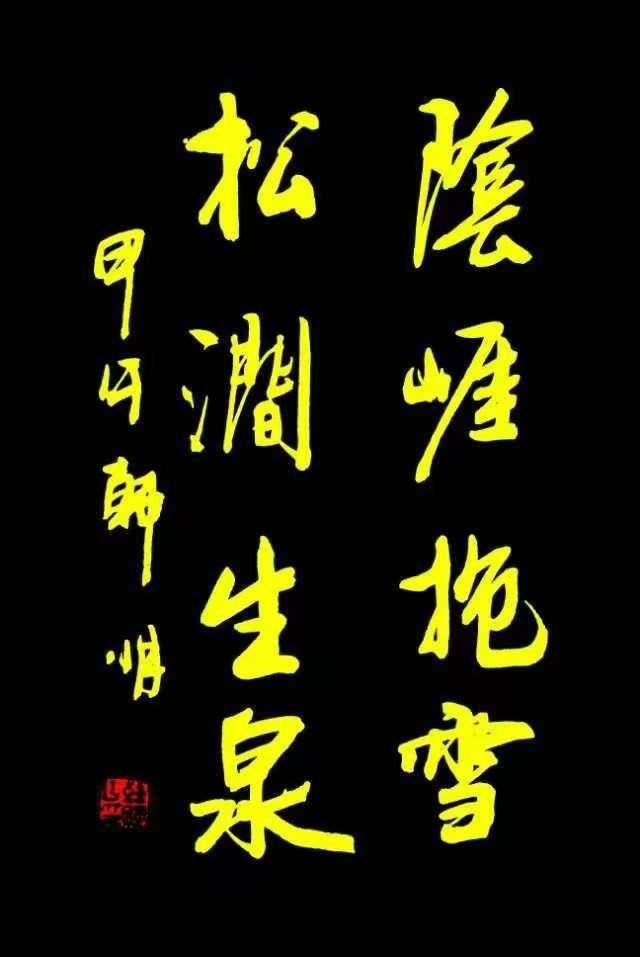 陰崖抱雪
松澗生泉
甲午 明